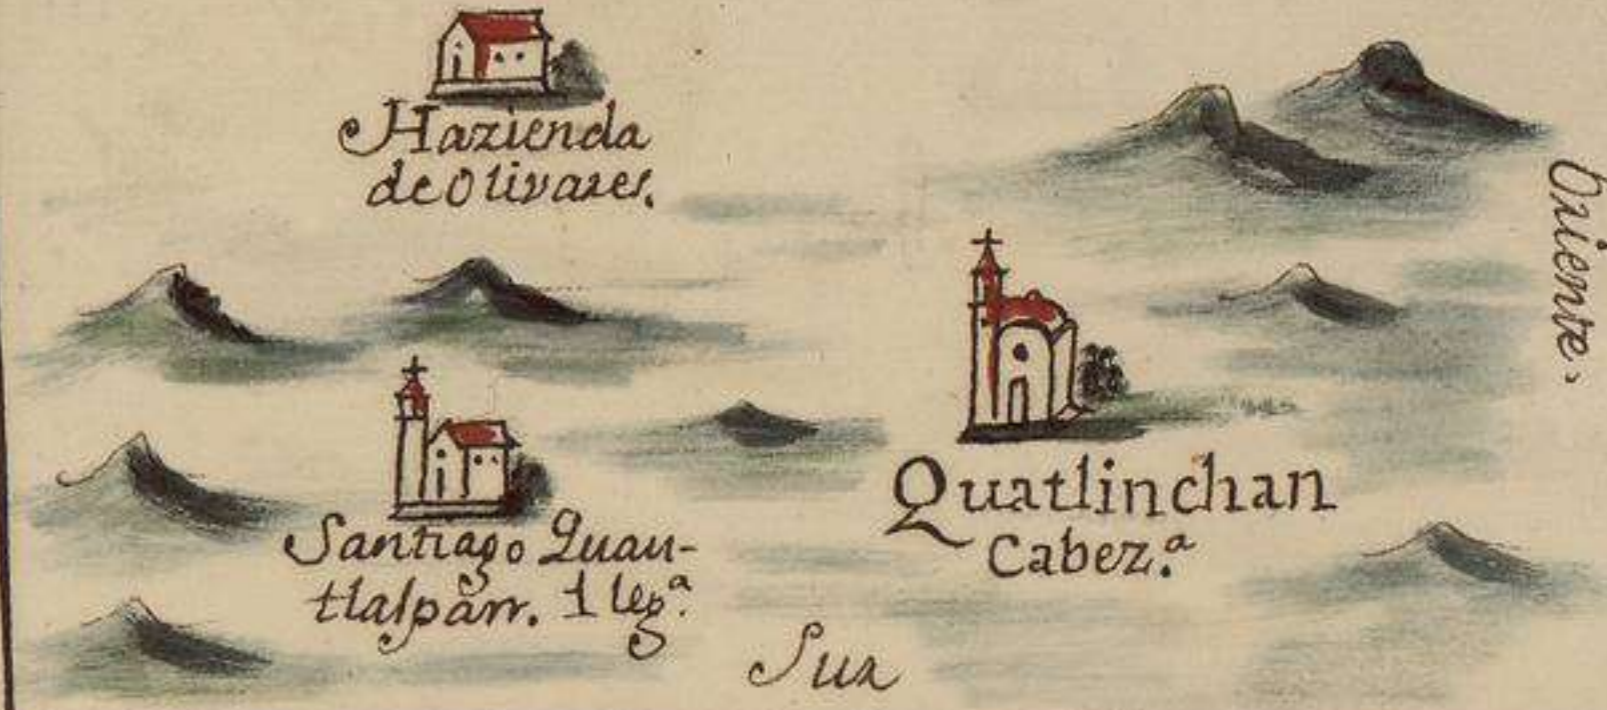 Hazienda
de Olivares.
Oriente.
Quatlinchan
Cabez.ª
Santiago Quau-
tlalpan. 1 leg.ª
Sur